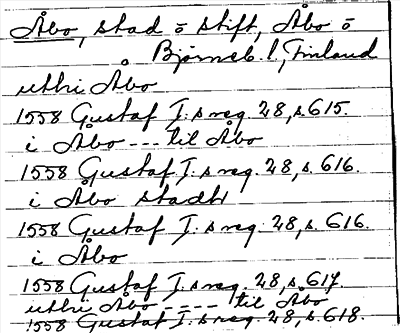 Åbo, stad o stift, Åbo o
Björneb. l., Finland
uthi Åbo
1558 Gustaf I:s reg. 28, s. 615.
i Åbo --- til Åbo
1558 Gustaf I:s reg. 28, s. 616.
i Åbo stadh
1558 Gustaf I:s reg. 28, s. 616.
i Åbo
1558 Gustaf I:s reg. 28, s. 617.
uthi Åbo ---- til Åbo
1558 Gustaf I:s reg. 28, s. 618.